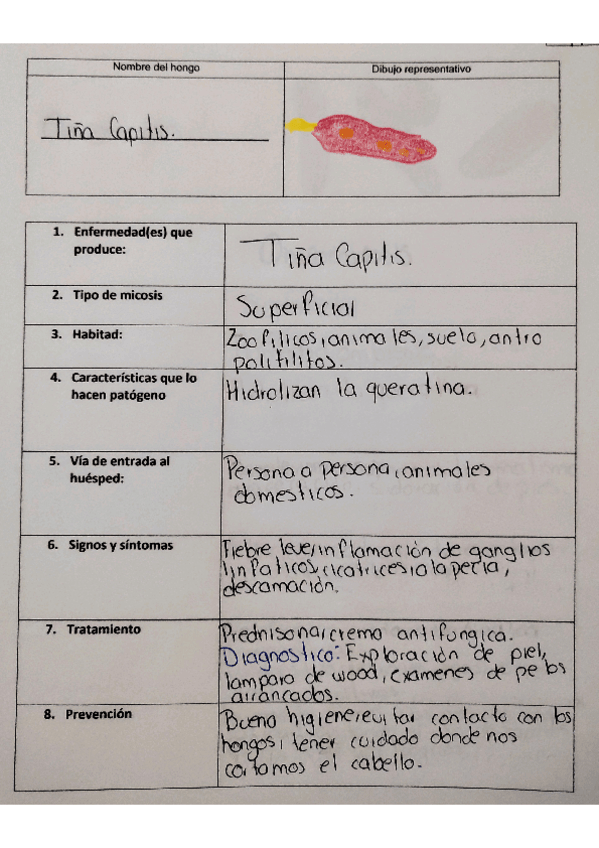 Nombre del hongo
Dibujo representativo
Tiña Capitis.
1. Enfermedad(es) que
produce:
Tiña Capitis.
2. Tipo de micosis
Superficial
3. Habitad:
Zoofilicos, animales, suelo, antro
polifilitos.
4. Características que lo
hacen patógeno
Hidrolizan la queratina.
5. Vía de entrada al
huésped:
Persona a persona, animales
domesticos.
6. Signos y síntomas
Fiebre leve, inflamación de ganglios
linfaticos, cicatrices, alopecia,
descamación.
7. Tratamiento
Prednisona, crema antifungica.
Diagnostico: Exploración de piel,
lampara de wood, examenes de pelos
arrancados.
8. Prevención
Buena higiene, evitar contacto con los
hongos, tener cuidado donde nos
cortamos el cabello.